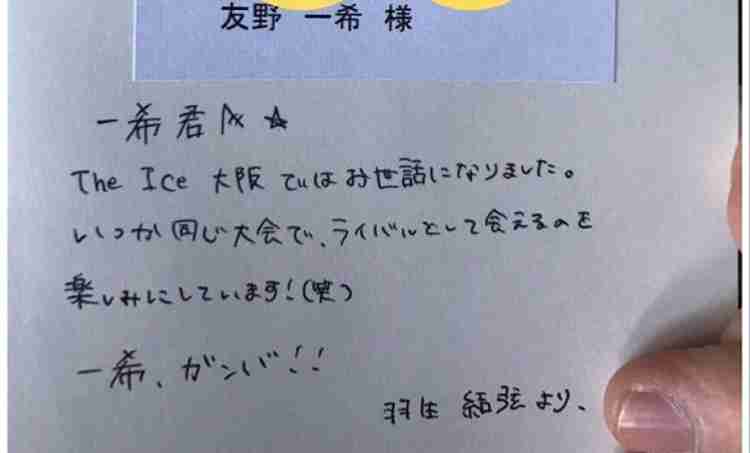 友野 一希 様
一希君へ☆
The Ice 大阪 ではお世話になりました。
いつか同じ大会で、ライバルとして会えるのを
楽しみにしています!(笑)
一希、ガンバ!!
羽生 結弦 より、